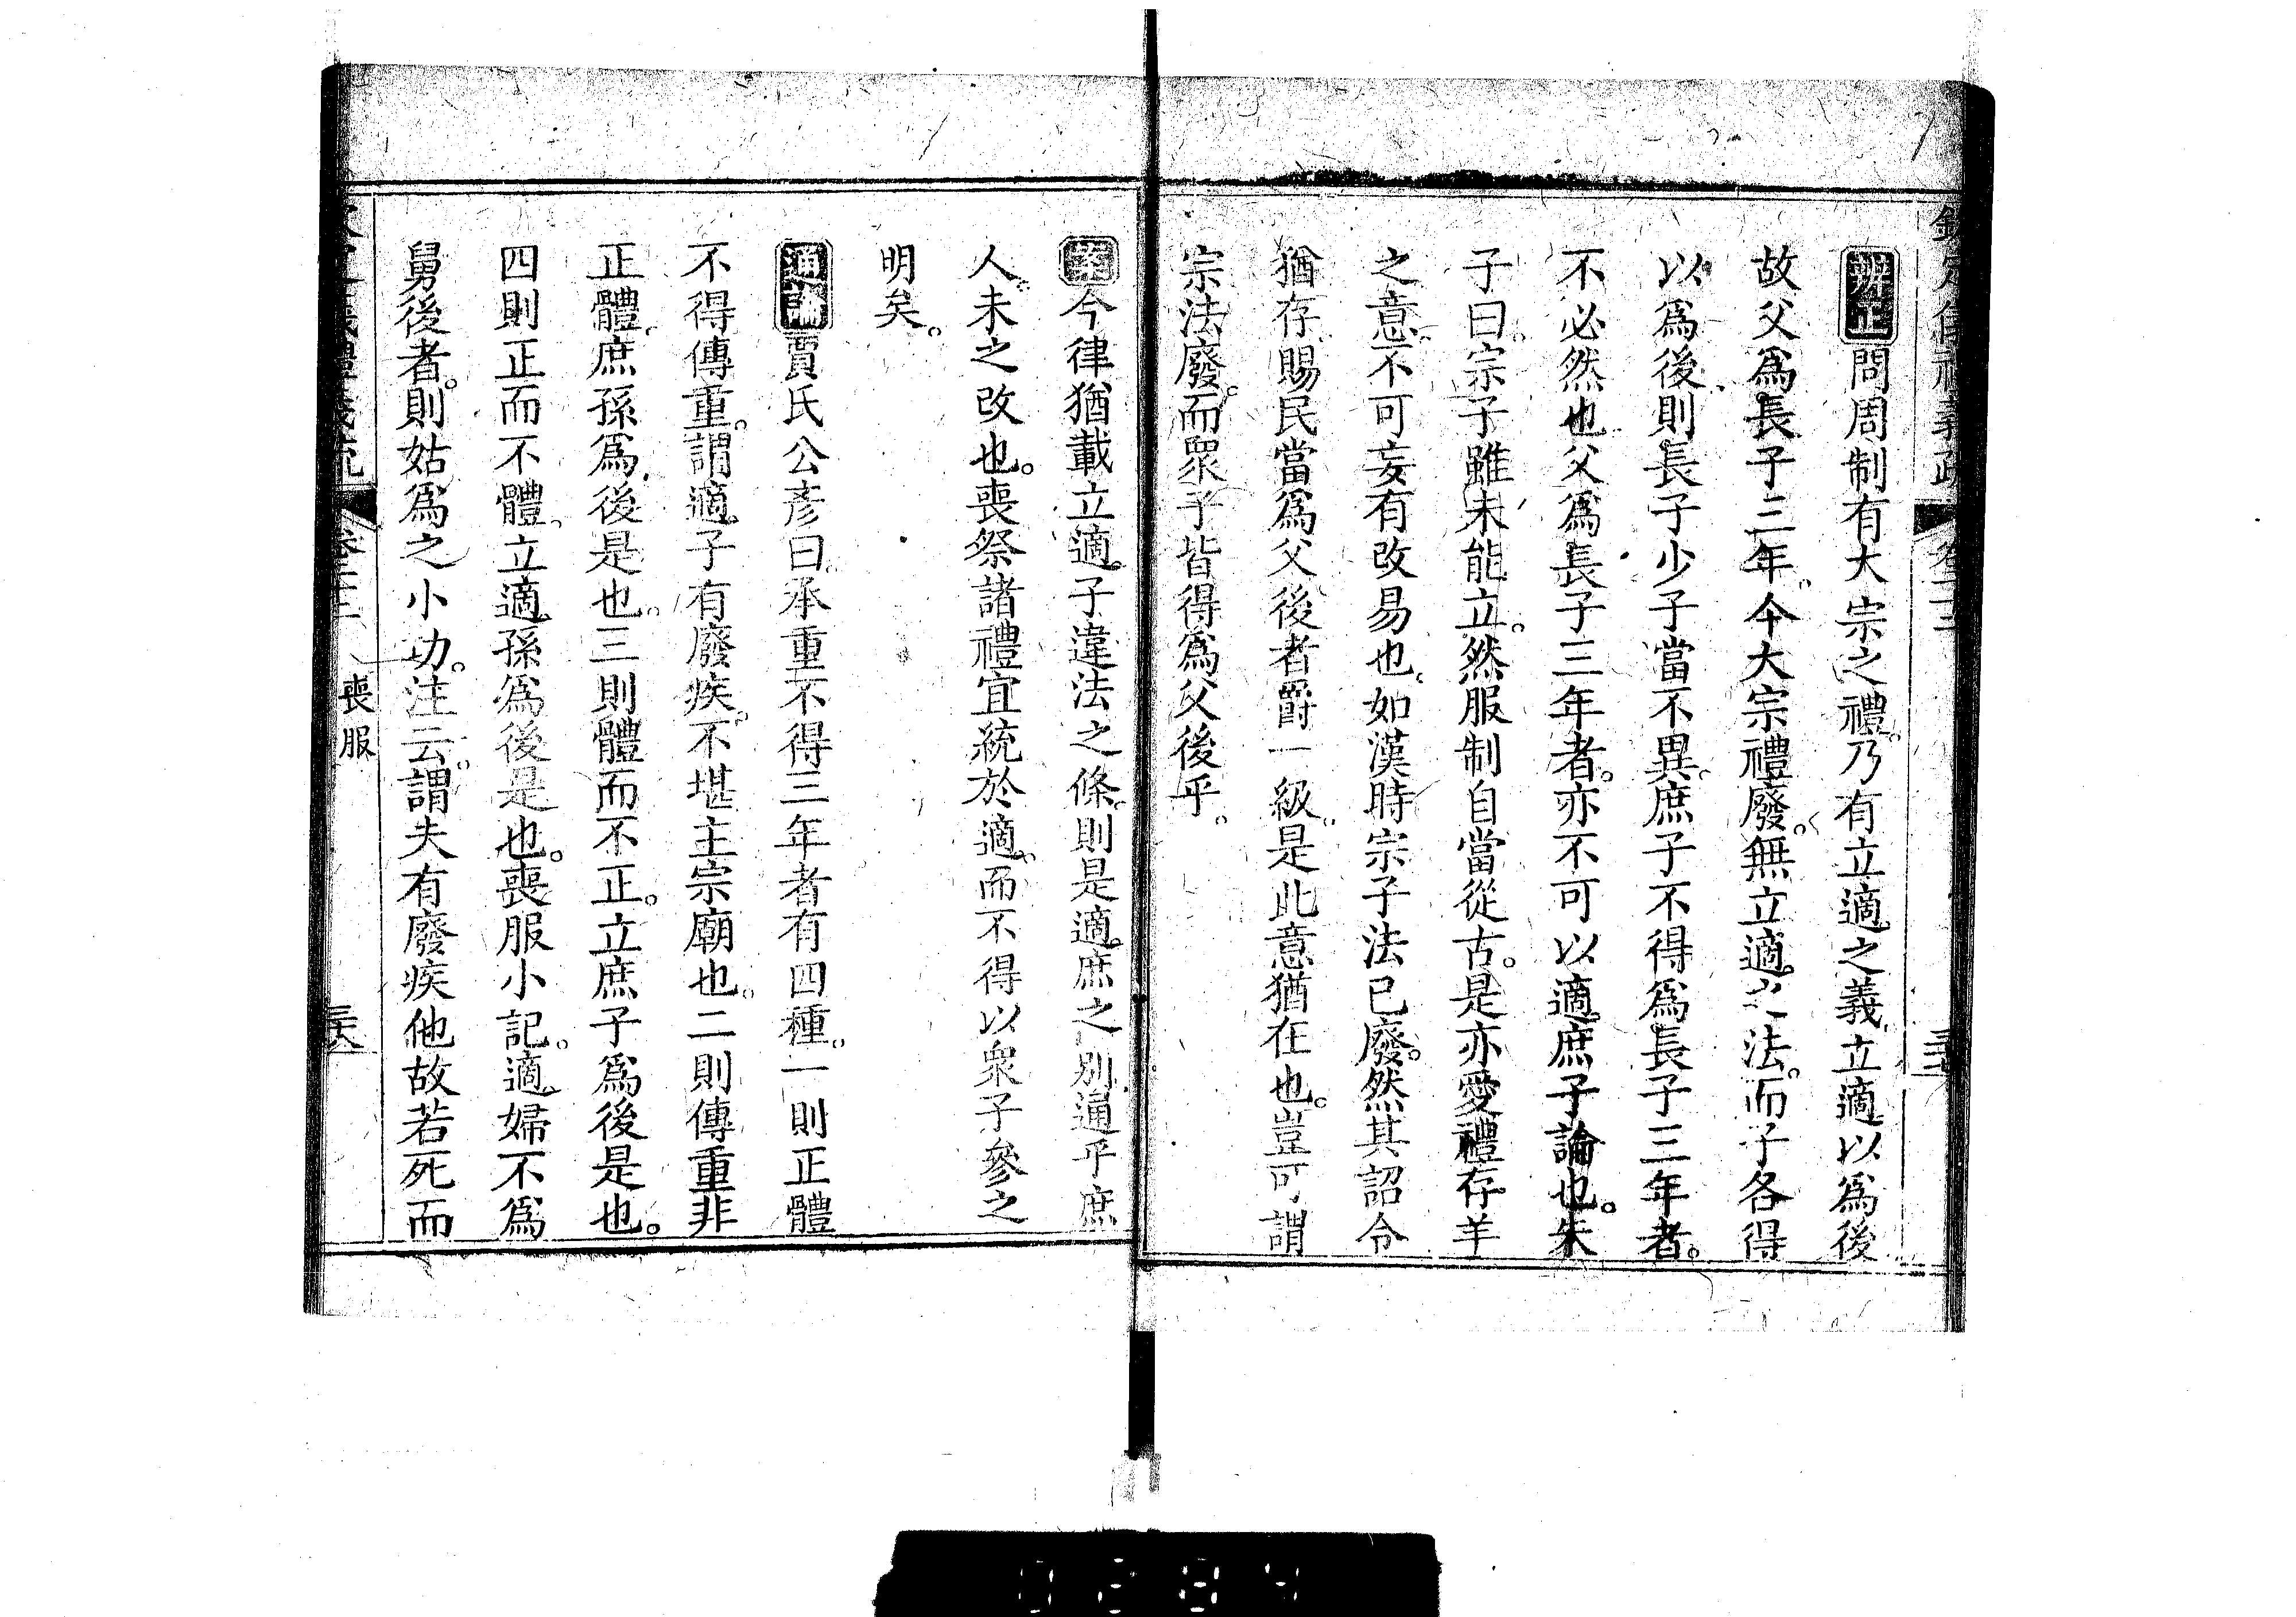 辨正問周制有大宗之禮。乃有立適。之義立適以爲後
故父爲長子三年。今大宗禮廢。無立適。之法。而子各得
以爲後則長子少子當不異。庶子不得爲長子三年者。
不必然也父爲長子三年者。亦不可以適庶子論也。朱
子曰。宗子雖未能立。然服制自當從古。是亦愛禮存羊
之意。不可妄有改易也。如漢時宗子法已廢。然其詔令
猶存賜民當爲父後者爵一級。是此意猶在也。豈可謂
宗法廢。而眾子皆得爲父後乎。
案今律猶載立適。子違法之條。則是適。庶之別通乎庶
人。未之改也。喪祭諸禮宜統於適。而不得以衆子參之
明矣。
通論賈氏公彥曰。承重不得三年者有四種。一則正體
不得傳重。謂適。子有廢疾。不堪主宗廟也。二則傳重非
正體。庶孫爲後是也。三則體而不正。立庶子爲後是也。
四則正而不體。立適孫爲後是也。喪服小記。適。婦不爲
舅後者。則姑爲之小功。注云。謂夫有廢疾他故若死而
喪服